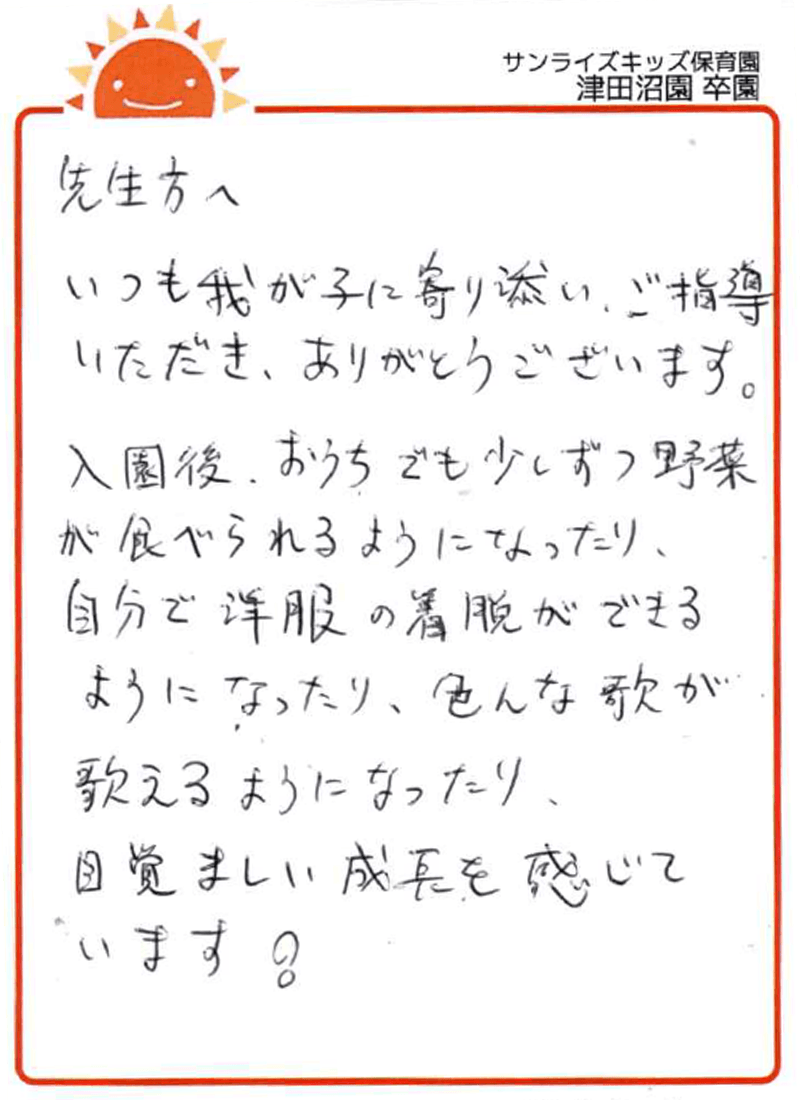 サンライズキッズ保育園
津田沼園 卒園
先生方へ
いつも我が子に寄り添い、ご指導
いただき、ありがとうございます。
入園後、おうちでも少しずつ野菜
が食べられるようになったり、
自分で洋服の着脱ができる
ようになったり、色んな歌が
歌えるようになったり、
目覚ましい成長を感じて
います!